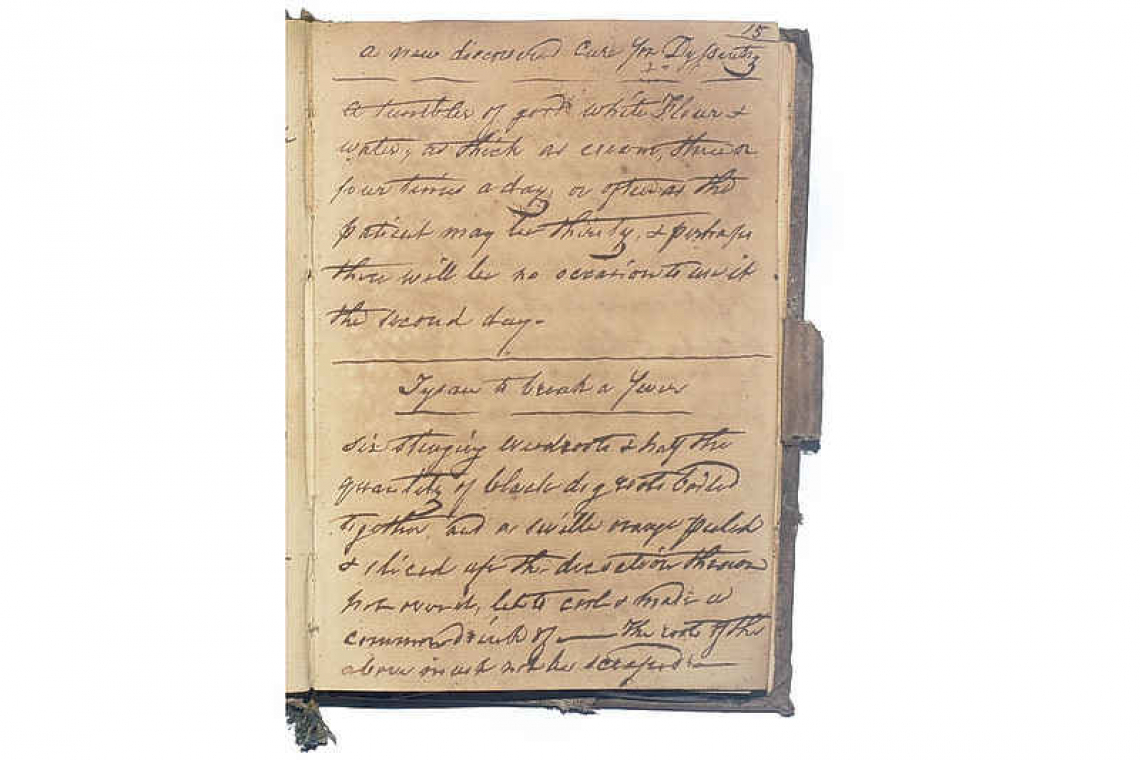 15
a new discovered Cure for Dysentry
a tumbler of good white Flour &
water, as thick as cream, three or
four times a day, or often as the
patient may be thirsty, & perhaps
there will be no occasion to use it
the second day.
Tysan to break a Fever
six stinging weed roots & half the
quantity of black dog roots boiled
together, and a sville orange peeled
& sliced up the decoction thrown
hot over it, let to cool & made a
common drink of — The roots of the
above must not be scraped —